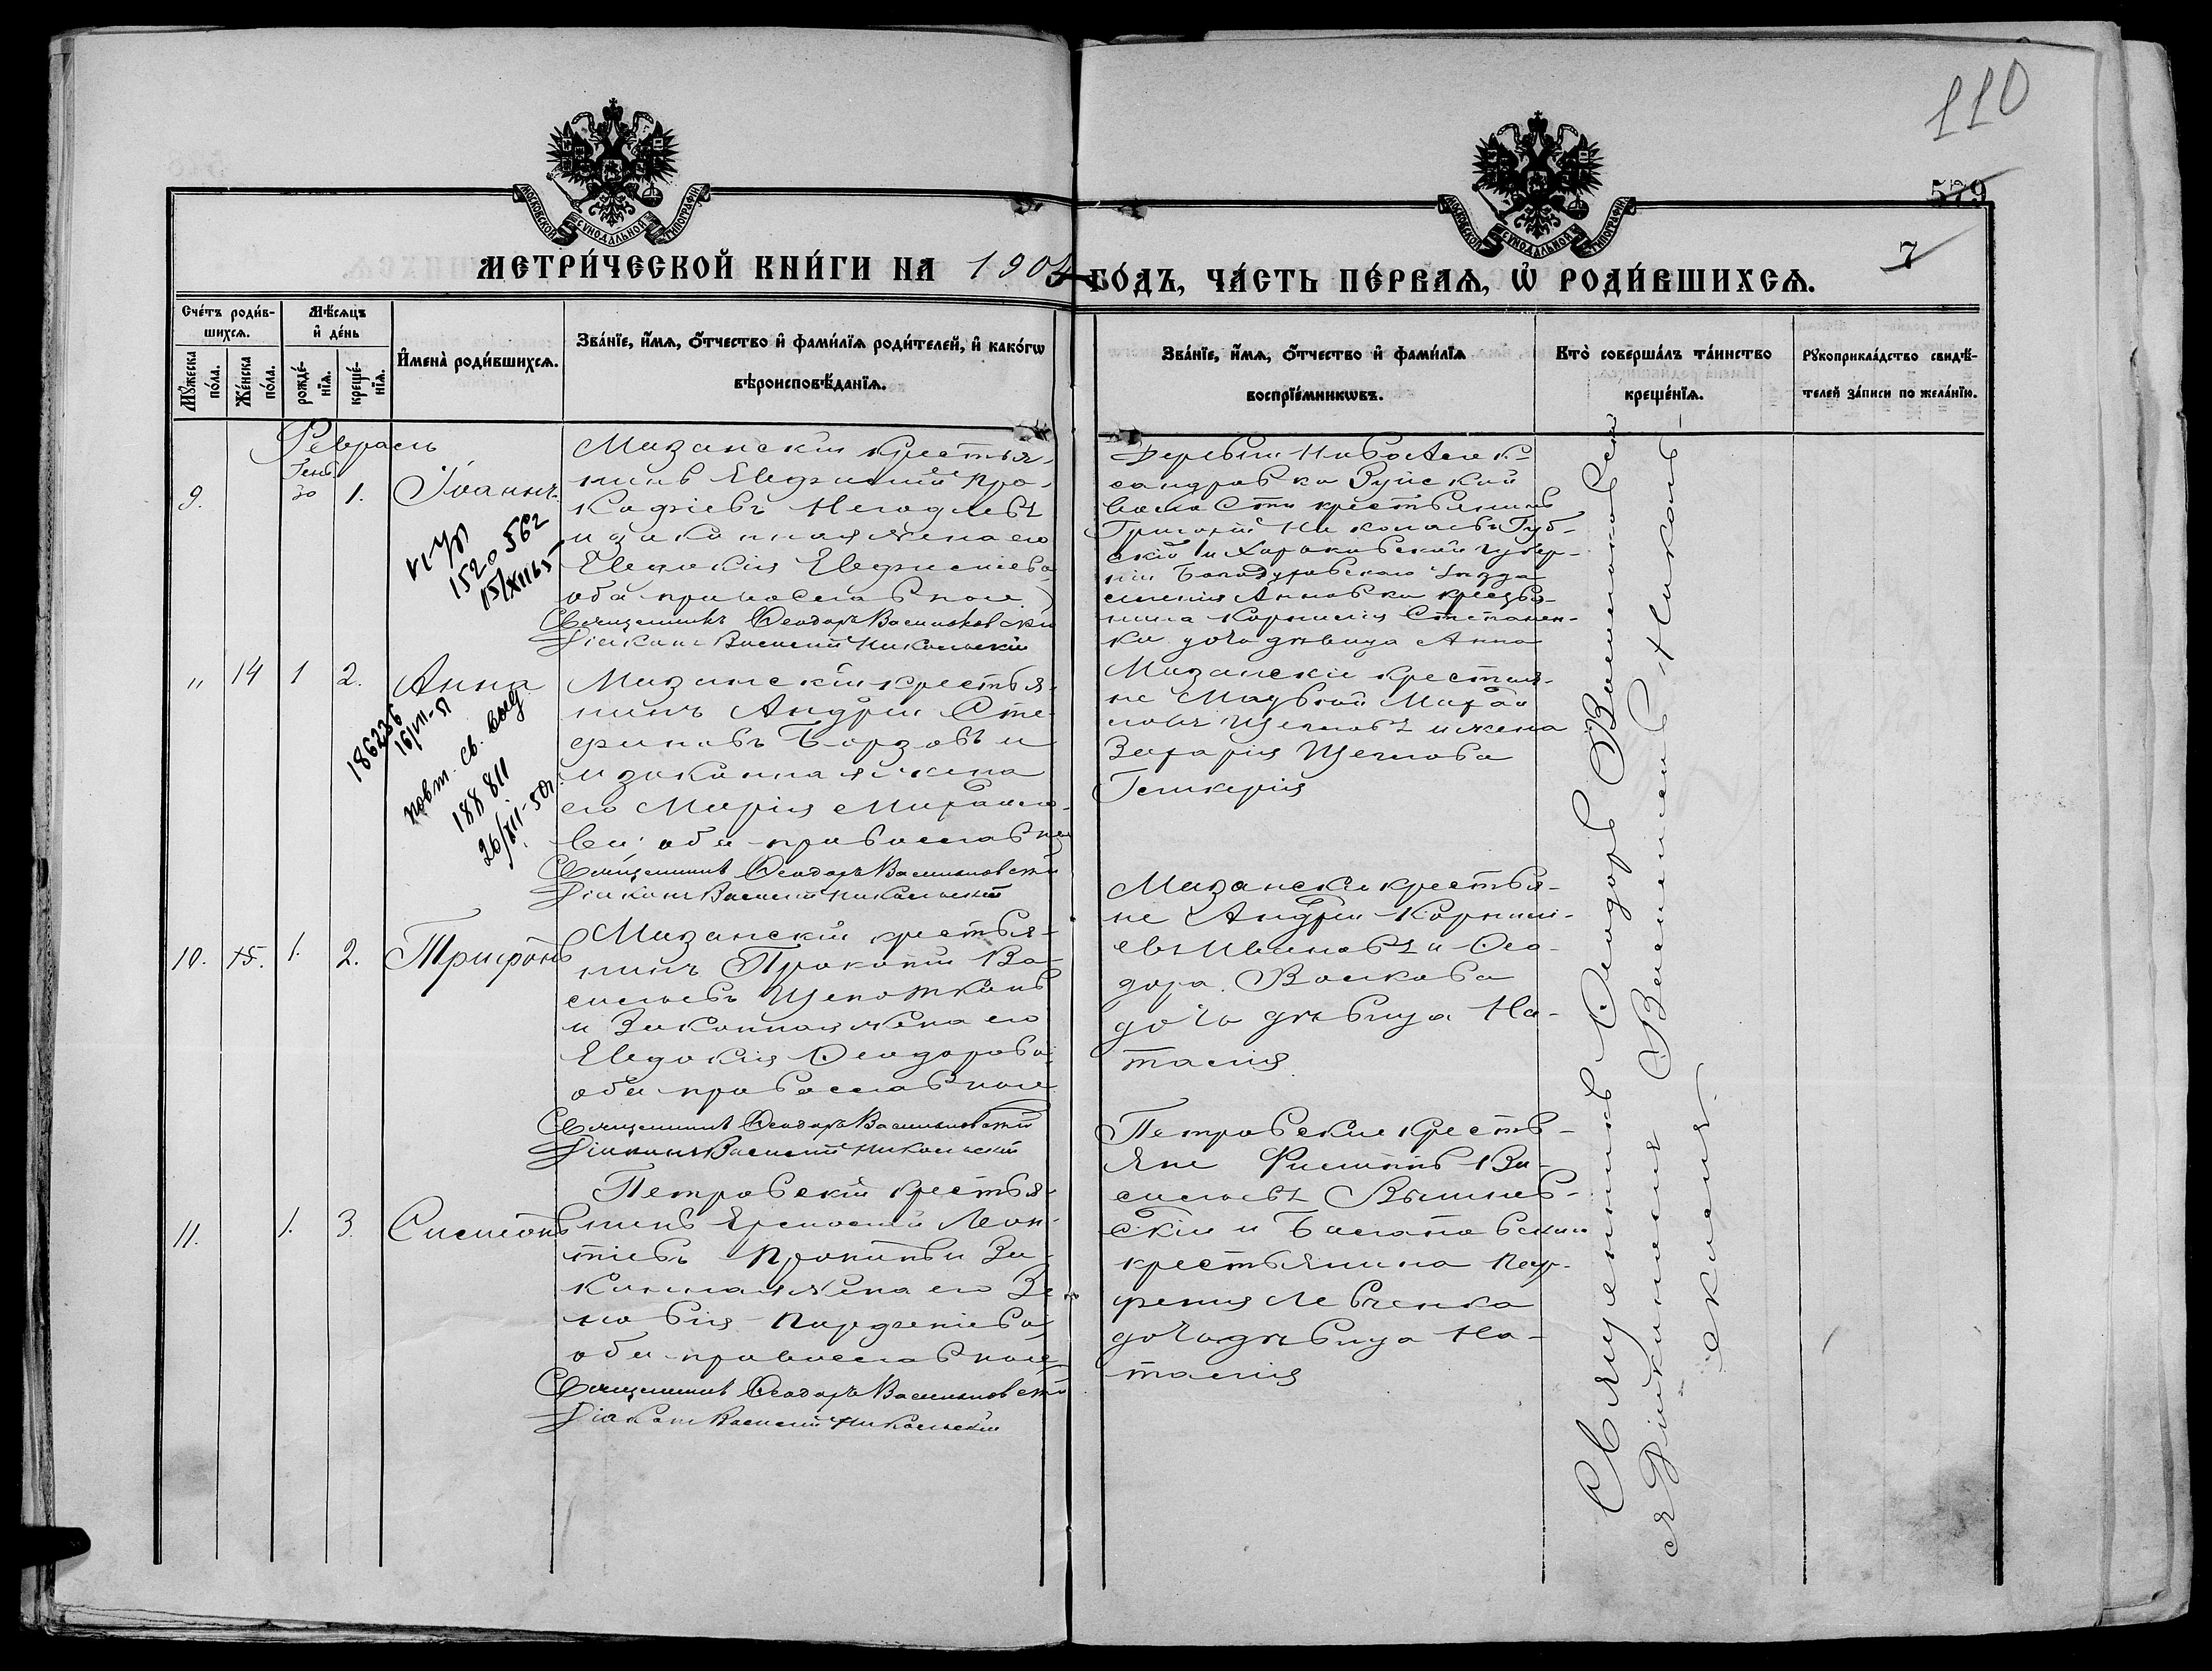 110
579
7
МОСКОВСКОЙ СѴНОДАЛЬНОЙ ТИПОГРАФІИ
МОСКОВСКОЙ СѴНОДАЛЬНОЙ ТИПОГРАФІИ
МЕТРИ́ЧЕСКОЙ КНИ́ГИ НА 190
ГО́ДЪ, ЧА́СТЬ ПЕ́РВАѦ, Ѡ҆ РОДИ́ВШИХСѦ.
Сче́тъ роди́в-
шихсѧ.
Мꙋ́жеска
по́ла.
Же́нска
по́ла.
Мѣ́сѧцъ
и҆ де́нь
рожде́-
нїѧ.
креще́-
нїѧ.
И҆мена̀ роди́вшихсѧ.
Зва́нїе, и҆́мѧ, ѻ҆́тчество и҆ фами́лїѧ роди́телей, и҆ како́гѡ
вѣроисповѣ́данїѧ.
Зва́нїе, и҆́мѧ, ѻ҆́тчество и҆ фами́лїѧ
воспрїе́мникѡвъ.
Кто̀ соверша́лъ та́инство
креще́нїѧ.
Рꙋкоприкла́дство свидѣ́-
телей за́писи по жела́нїю.
Февраль
9.
Генв.
30
1.
Іоаннъ.
1520
15/XII
Мазанскій крестья-
нинъ Евфимій Про-
кофіевъ
и законная жена его
Евдокія Евфиміева,
оба православное.
Священникъ Ѳеодоръ Васильковскій
Діаконъ Василій Никольскій
Деревни Ново Алек-
сандровки Зуйской
волости крестьянинъ
Григорій Николаевъ Губ-
скій и Харьковской губер-
ніи Богодуховскаго уѣзда
селенія Анновки крестья-
нина Корнилія Степанен-
ки дочь дѣвица Анна
"
14
1
2.
Анна
186236
16/VII-51
повт. св. выд
188811
26/XII-50г.
Мазанскій крестья-
нинъ Андрей Сте-
фановъ Борзовъ и
и законная жена
его Марія Михайло-
ва, оба православное
Священникъ Ѳеодоръ Васильковскій
Діаконъ Василій Никольскій
Мазанскіе крестья-
не Матвѣй Михай-
ловъ Щегловъ и жена
Захарія Щеглова
Гликерія
10.
15.
1.
2.
Трифонъ
Мазанскій крестья-
нинъ Прокопій Ва-
сильевъ Щепоткинъ
и Законная жена его
Евдокія Ѳеодорова,
оба православное
Священникъ Ѳеодоръ Васильковскій
Діаконъ Василій Никольскій
Мазанскіе крестья-
не Андрей Корнилі-
евъ Ивановъ и Ѳео-
дора Волкова
дочь дѣвица На-
талія.
11.
1.
3.
Симеонъ
Петровскій крестья-
нинъ Ермолай Леон-
тіевъ и За-
конная жена его Зи-
новія Парфеніева,
оба православное
Священникъ Ѳеодоръ Васильковскій
Діаконъ Василій Никольскій
Петровскіе кресть-
яне Филиппъ Ва-
сильевъ Вышнев-
скій и
крестьянина Пар-
фенія Левченка
дочь дѣвица На-
талія
Священникъ Ѳеодоръ Васильковскій
съ Діакономъ Василіемъ Николь-
скимъ.